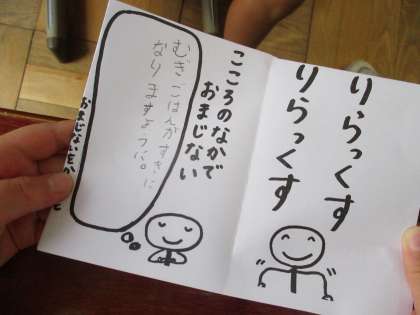 りらっくす
りらっくす
こころのなかで
おまじない
むぎごはんがすきに
なりますように。
おまじないをか